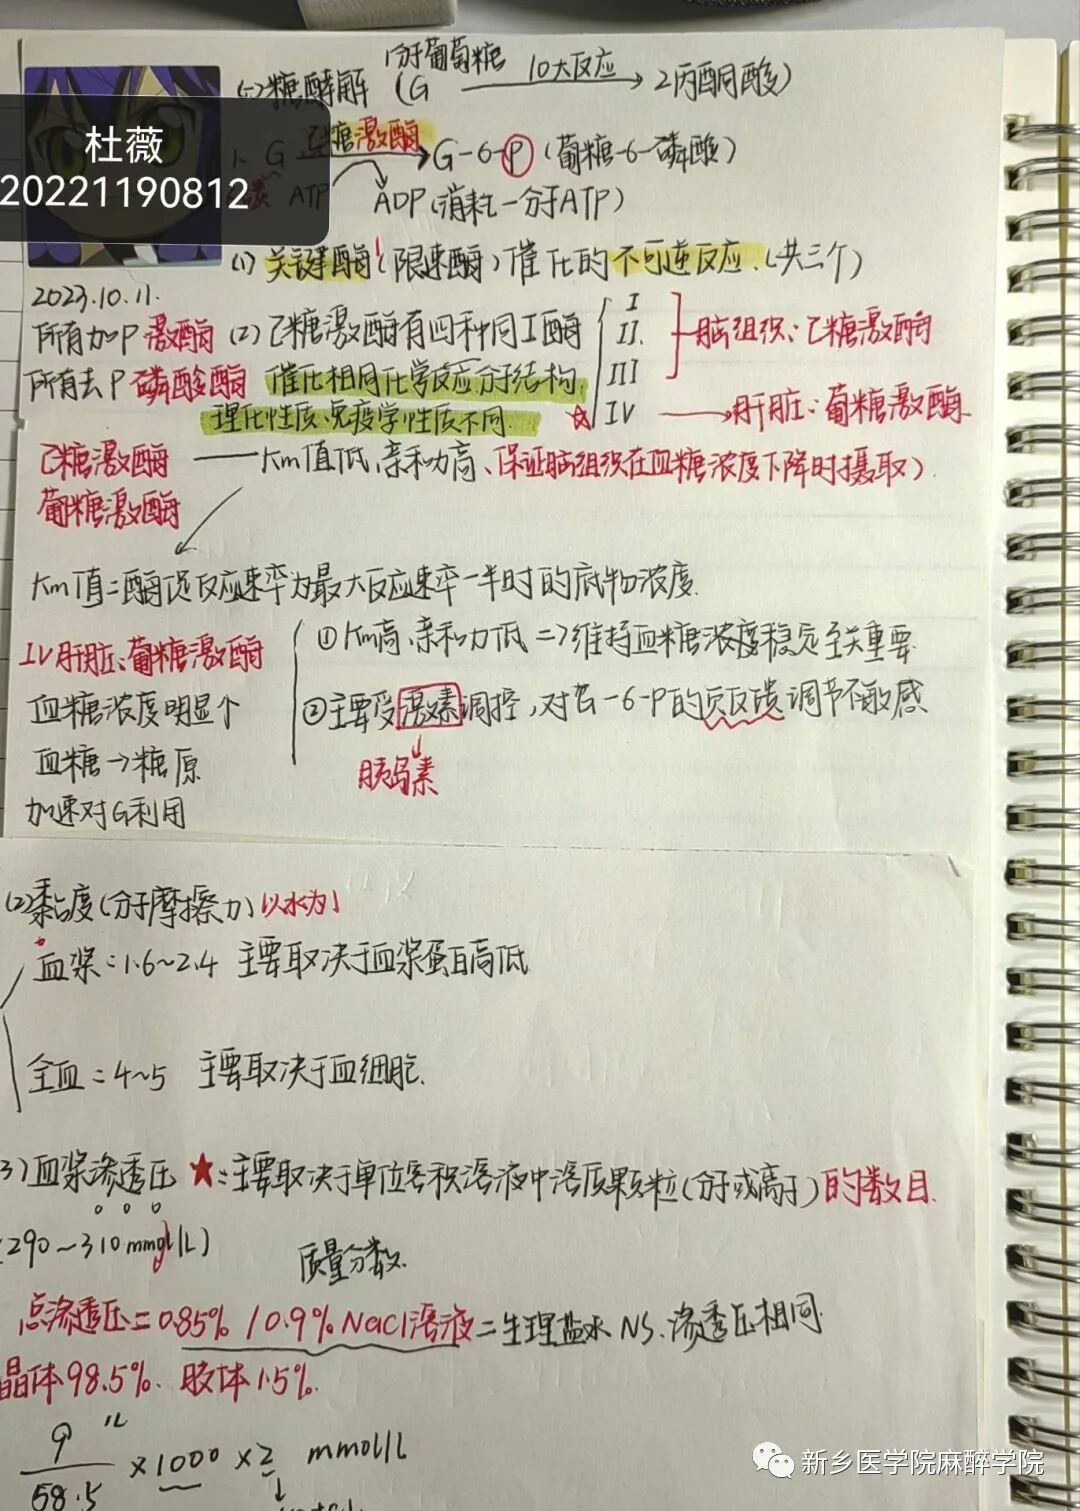 1分子葡萄糖
(一)糖酵解 (G 10大反应 → 2丙酮酸)
杜薇
20221190812
1. G 己糖激酶 → G-6-P (葡糖-6-磷酸)
ATP ADP (消耗一分子ATP)
(1) 关键酶(限速酶)催化的不可逆反应.(共三个)
2023.10.11.
所有加P 激酶 (2) 己糖激酶有四种同工酶
I
II.
III
脑组织:己糖激酶
所有去P 磷酸酶 催化相同化学反应,分子结构
理化性质、免疫学性质不同.
☆ IV → 肝脏:葡糖激酶.
己糖激酶 —— Km值低,亲和力高、保证脑组织在血糖浓度下降时摄取)
葡糖激酶
Km值=酶促反应速率为最大反应速率一半时的底物浓度.
IV肝脏:葡糖激酶
血糖浓度明显个
血糖→糖原
加速对G利用
①Km高,亲和力低 => 维持血糖浓度稳定至关重要
②主要受激素调控,对G-6-P的负反馈调节不敏感
胰岛素
(2)黏度(分子摩擦力)以水为1
血浆:1.6~2.4 主要取决于血浆蛋白高低
全血=4~5 主要取决于血细胞.
3)血浆渗透压 ★:主要取决于单位容积溶液中溶质颗粒(分子或离子)的数目.
(290~310mmol/L)
质量分数.
点渗透压=0.85% / 0.9% NaCl溶液=生理盐水 NS.渗透压相同.
晶体98.5%. 胶体1.5%.
9 1L
58.5
×1000 ×2 mmol/L
新乡医学院麻醉学院